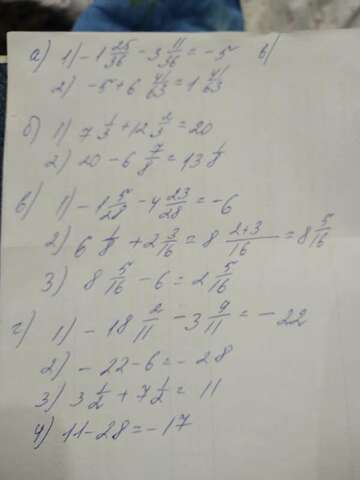 а) 1) -1 25/36 - 3 11/36 = -5 в)
2) -5+6 41/63 = 1 41/63
б) 1) 7 1/3 + 12 2/3 = 20
2) 20 - 6 7/8 = 13 1/8
в) 1) -1 5/28 - 4 23/28 = -6
2) 6 1/8 + 2 3/16 = 8 2+3/16 = 8 5/16
3) 8 5/16 - 6 = 2 5/16
г) 1) -18 2/11 - 3 9/11 = -22
2) -22-6 = -28
3) 3 1/2 + 7 1/2 = 11
4) 11-28 = -17